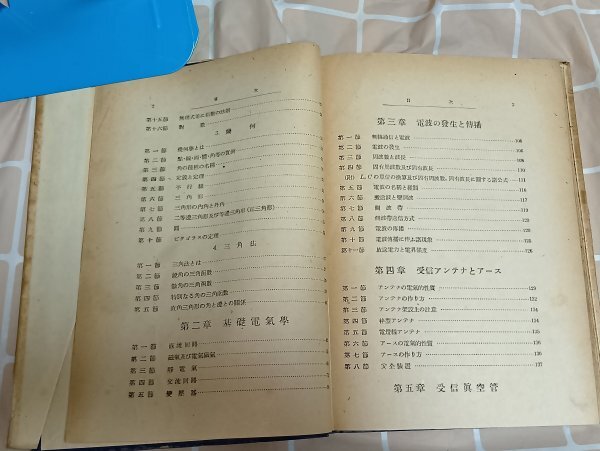 2 目次
第十五節 無理式並に指數の法則
第十六節 對數
3. 幾何
第一節 幾何學とは
第二節 點・線・面・體・角等の實例
第三節 角の種類の名稱
第四節 定義と定理
第五節 平行線
第六節 三角形
第七節 三角形の內角と外角
第八節 二等邊三角形及び等邊三角形(正三角形)
第九節 圓
第十節 ピタゴラスの定理
4. 三角法
第一節 三角法とは
第二節 銳角の三角函數
第三節 餘角の三角函數
第四節 特別なる角の三角函數
第五節 直角三角形の角と邊との關係
第二章 基礎電氣學
第一節 直流回路
第二節 磁氣及び電氣磁氣
第三節 靜電氣
第四節 交流回路
第五節 變壓器
目次 3
第三章 電波の發生と傳播
第一節 無線通信と電波 106
第二節 電波の發生 108
第三節 周波數と波長 110
第四節 固有周波數及び固有波長 111
(附) L,Cの單位の換算及び固有周波數、固有波長に關する諸公式 111
第五節 電波の名稱と種類 116
第六節 搬送波と變調波 117
第七節 側波帶 119
第八節 側波帶送信方式 121
第九節 電波の傳播 122
第十節 電波傳播に伴ふ諸現象 125
第十一節 放送電力と電界强度 126
第四章 受信アンテナとアース
第一節 アンテナの電氣的性質 129
第二節 アンテナの作り方 132
第三節 アンテナ架設上の注意 133
第四節 枠型アンテナ 134
第五節 電燈線アンテナ 134
第六節 アースの電氣的性質 136
第七節 アースの作り方 136
第八節 安全裝置 137
第五章 受信眞空管